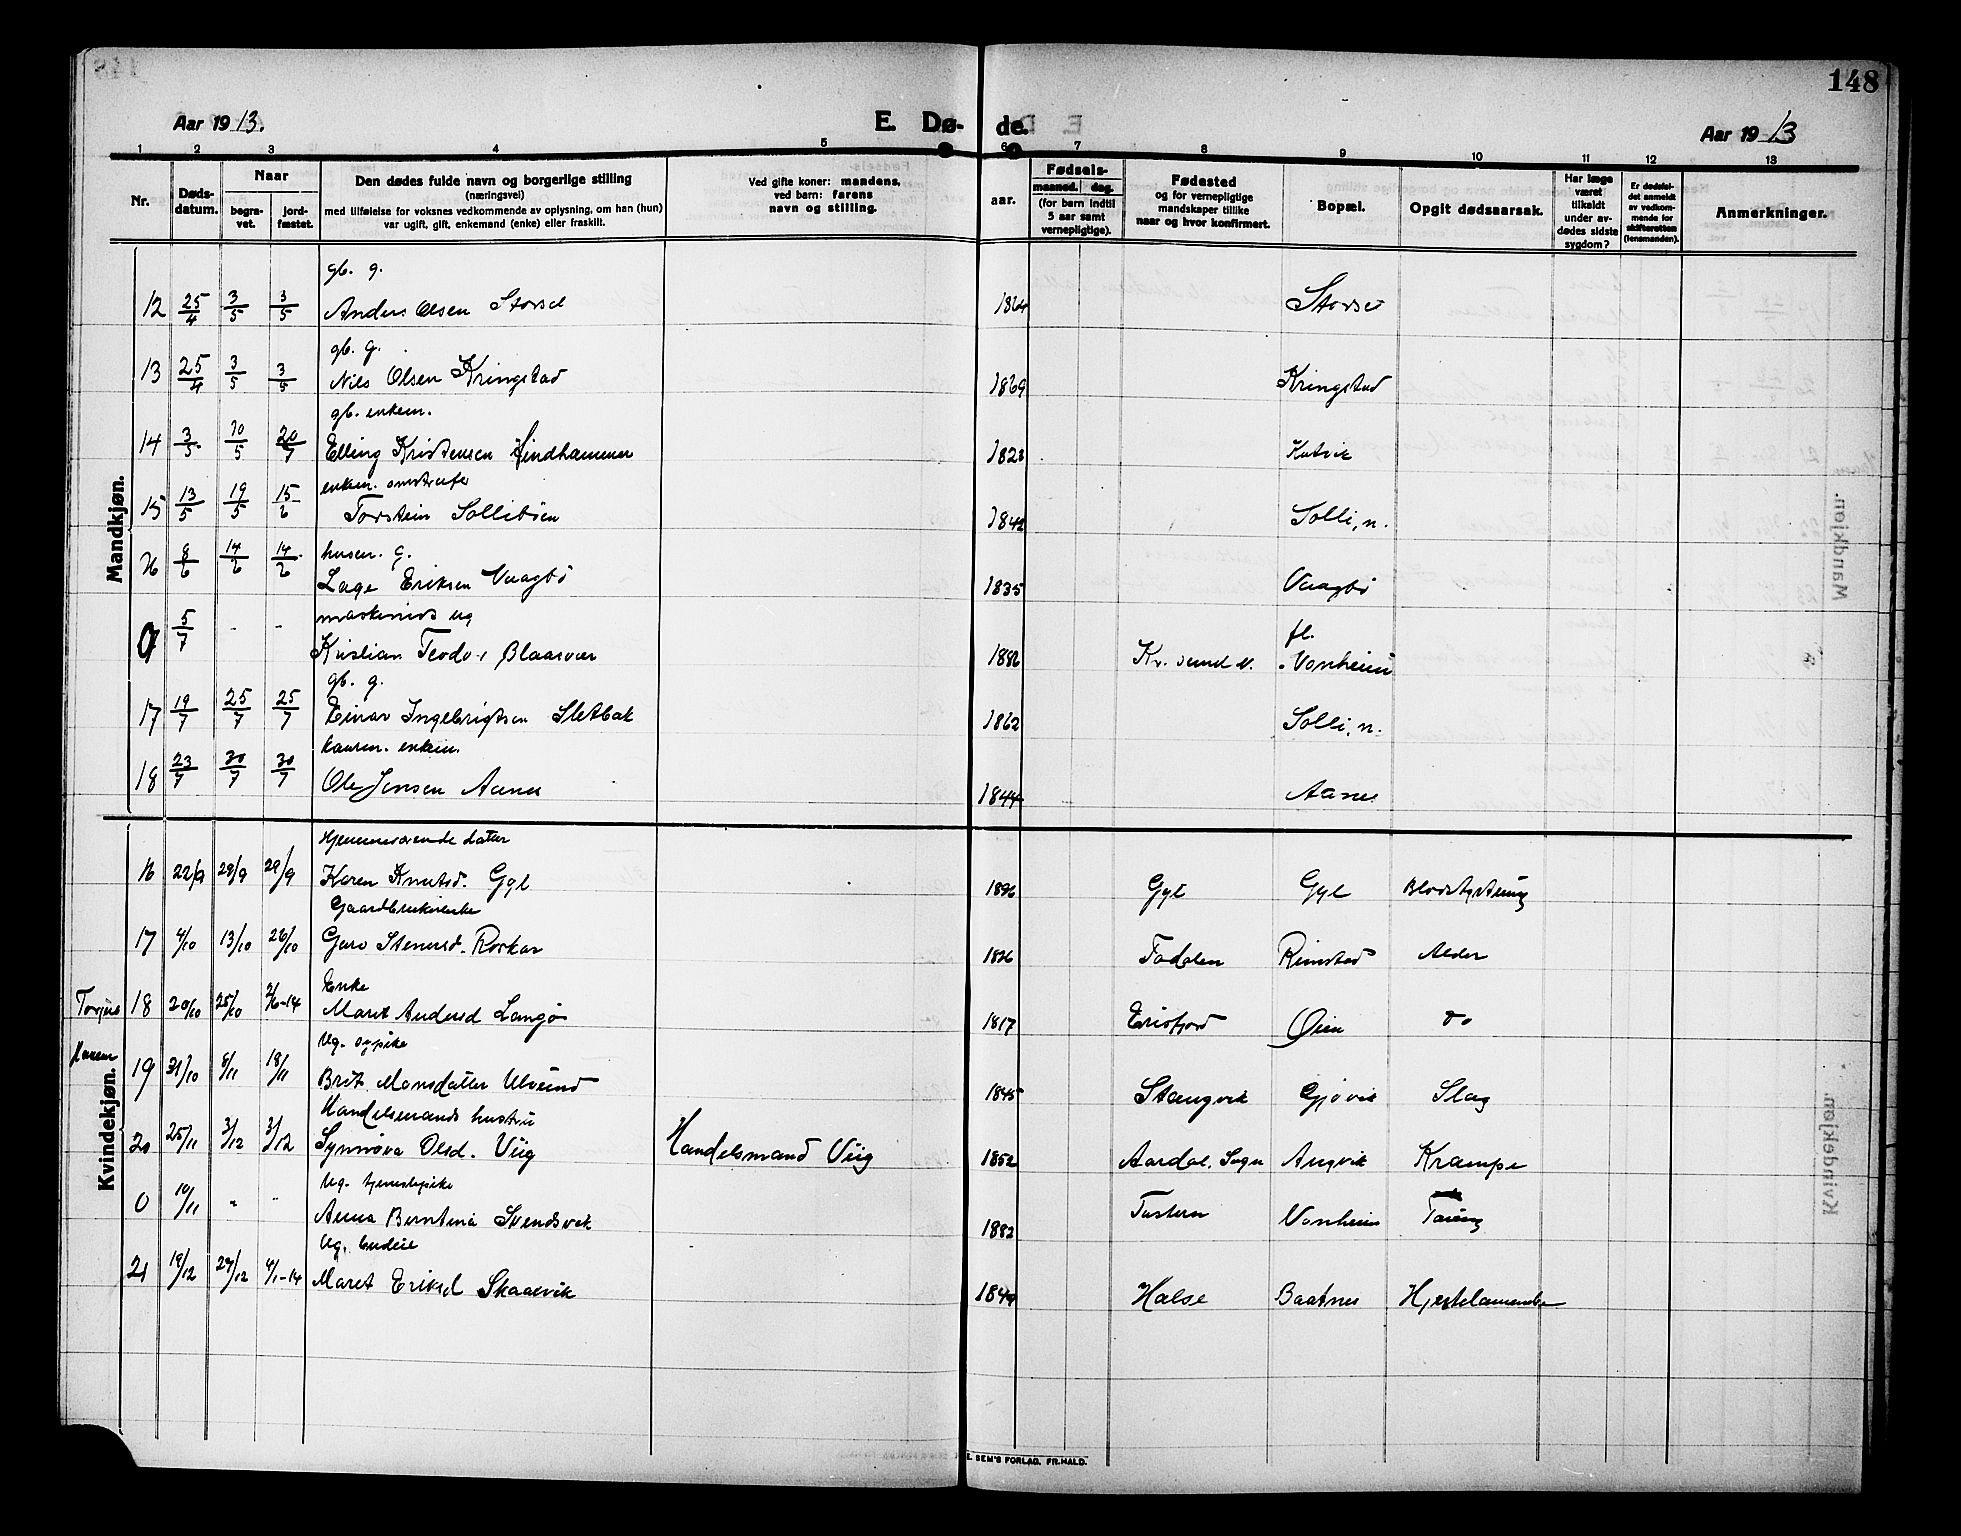 148
Aar 1913.
E. Dø-
de.
Aar 1913
1 2 3 4 5 6 7 8 9 10 11 12 13
Nr.
Døds-
datum.
Naar
begra-
vet.
jord-
fæstet.
Den dødes fulde navn og borgerlige stilling
(næringsvei)
med tilføielse for voksnes vedkommende av oplysning, om han (hun)
var ugift, gift, enkemand (enke) eller fraskilt.
Ved gifte koner: mandens,
ved barn: farens
navn og stilling.
aar.
Fødsels-
maaned. dag.
(for barn indtil
5 aar samt
vernepligtige).
Fødested
og for vernepligtige
mandskaper tillike
naar og hvor konfirmert.
Bopæl.
Opgit dødsaarsak.
Har læge
været
tilkaldt
under av-
dødes sidste
sygdom?
Er dødsfal-
det anmeldt
av vedkom-
mende for
skifteretten
(lensmanden).
Anmerkninger.
Mandkjøn.
gb. g.
12 25/4 3/5 3/5 Anders Olsen Storset 1864 Storset
gb. g.
13 25/4 3/5 3/5 Nils Olsen Kringstad 1869 Kringstad
gb. enkem.
14 3/5 10/5 20/7 Elling Kristensen Hindhammer 1823 Katvik
enkem.
15 13/5 19/5 15/6 Torstein Sollibøen 1842 Solli, n.
husm. g.
16 8/6 14/6 14/6 Lage Eriksen Vaagbø 1835 Vaagbø
maskinist ug
fl.
0 5/7 - - Kristian Teodor Blaasvær 1882 Kr. sund N. Vonheim
gb. g.
17 19/7 25/7 25/7 Einar Ingebrigtsen Sletbak 1862 Solli, n.
kaarm. enkem.
18 23/7 30/7 30/7 Ole Jensen Aanes 1844 Aanes
Kvindekjøn.
Hjemmeværende datter
16 22/9 29/9 29/9 Karen Knutsd. Gyl 1896 Gyl Gyl Blodstyrtning
Gaardbrukerenke
17 4/10 13/10 26/10 Guro Stenersd. Rorkar 1826 Todalen Rimstad Alder
Enke
18 20/10 25/10 2/6-14 Maret Andersd Langø 1817 Erisfjord Øien do
Ug. sypike
19 31/10 8/11 18/11 Brit Monsdatter Ulvund 1845 Stangvik Gjøvik Slag
Handelsmands hustru
20 25/11 3/12 3/12 Synnøva Olsd. Viig Handelsmand Viig 1852 Aardal, Sogn Angvik Krampe
Ug. tjenestepike
0 10/11 " " Anna Berntina Svendsvik 1882 Tustern Vonheim Tæring
Ug. budeie
21 19/12 27/12 4/1-14 Maret Eriksd Skaalvik 1849 Halse Baatnes Hjertelammelse
E. SEM'S FORLAG, FR.HALD.